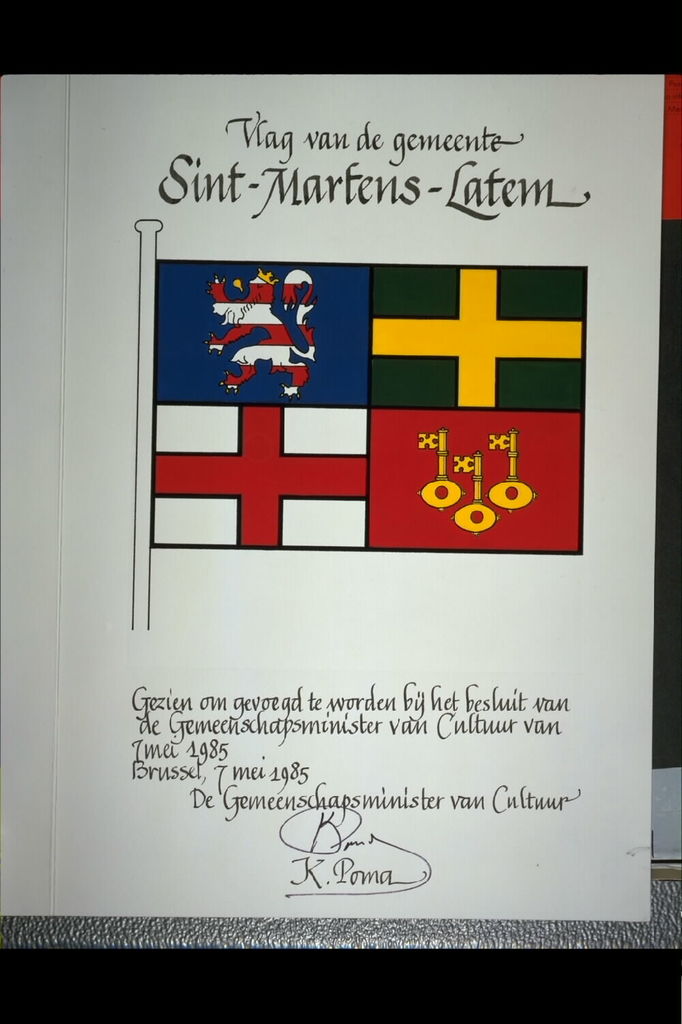 Vlag van de gemeente
Sint-Martens-Latem
Gezien om gevoegd te worden bij het besluit van
de Gemeenschapsminister van Cultuur van
7 mei 1985
Brussel, 7 mei 1985
De Gemeenschapsminister van Cultuur
K. Poma